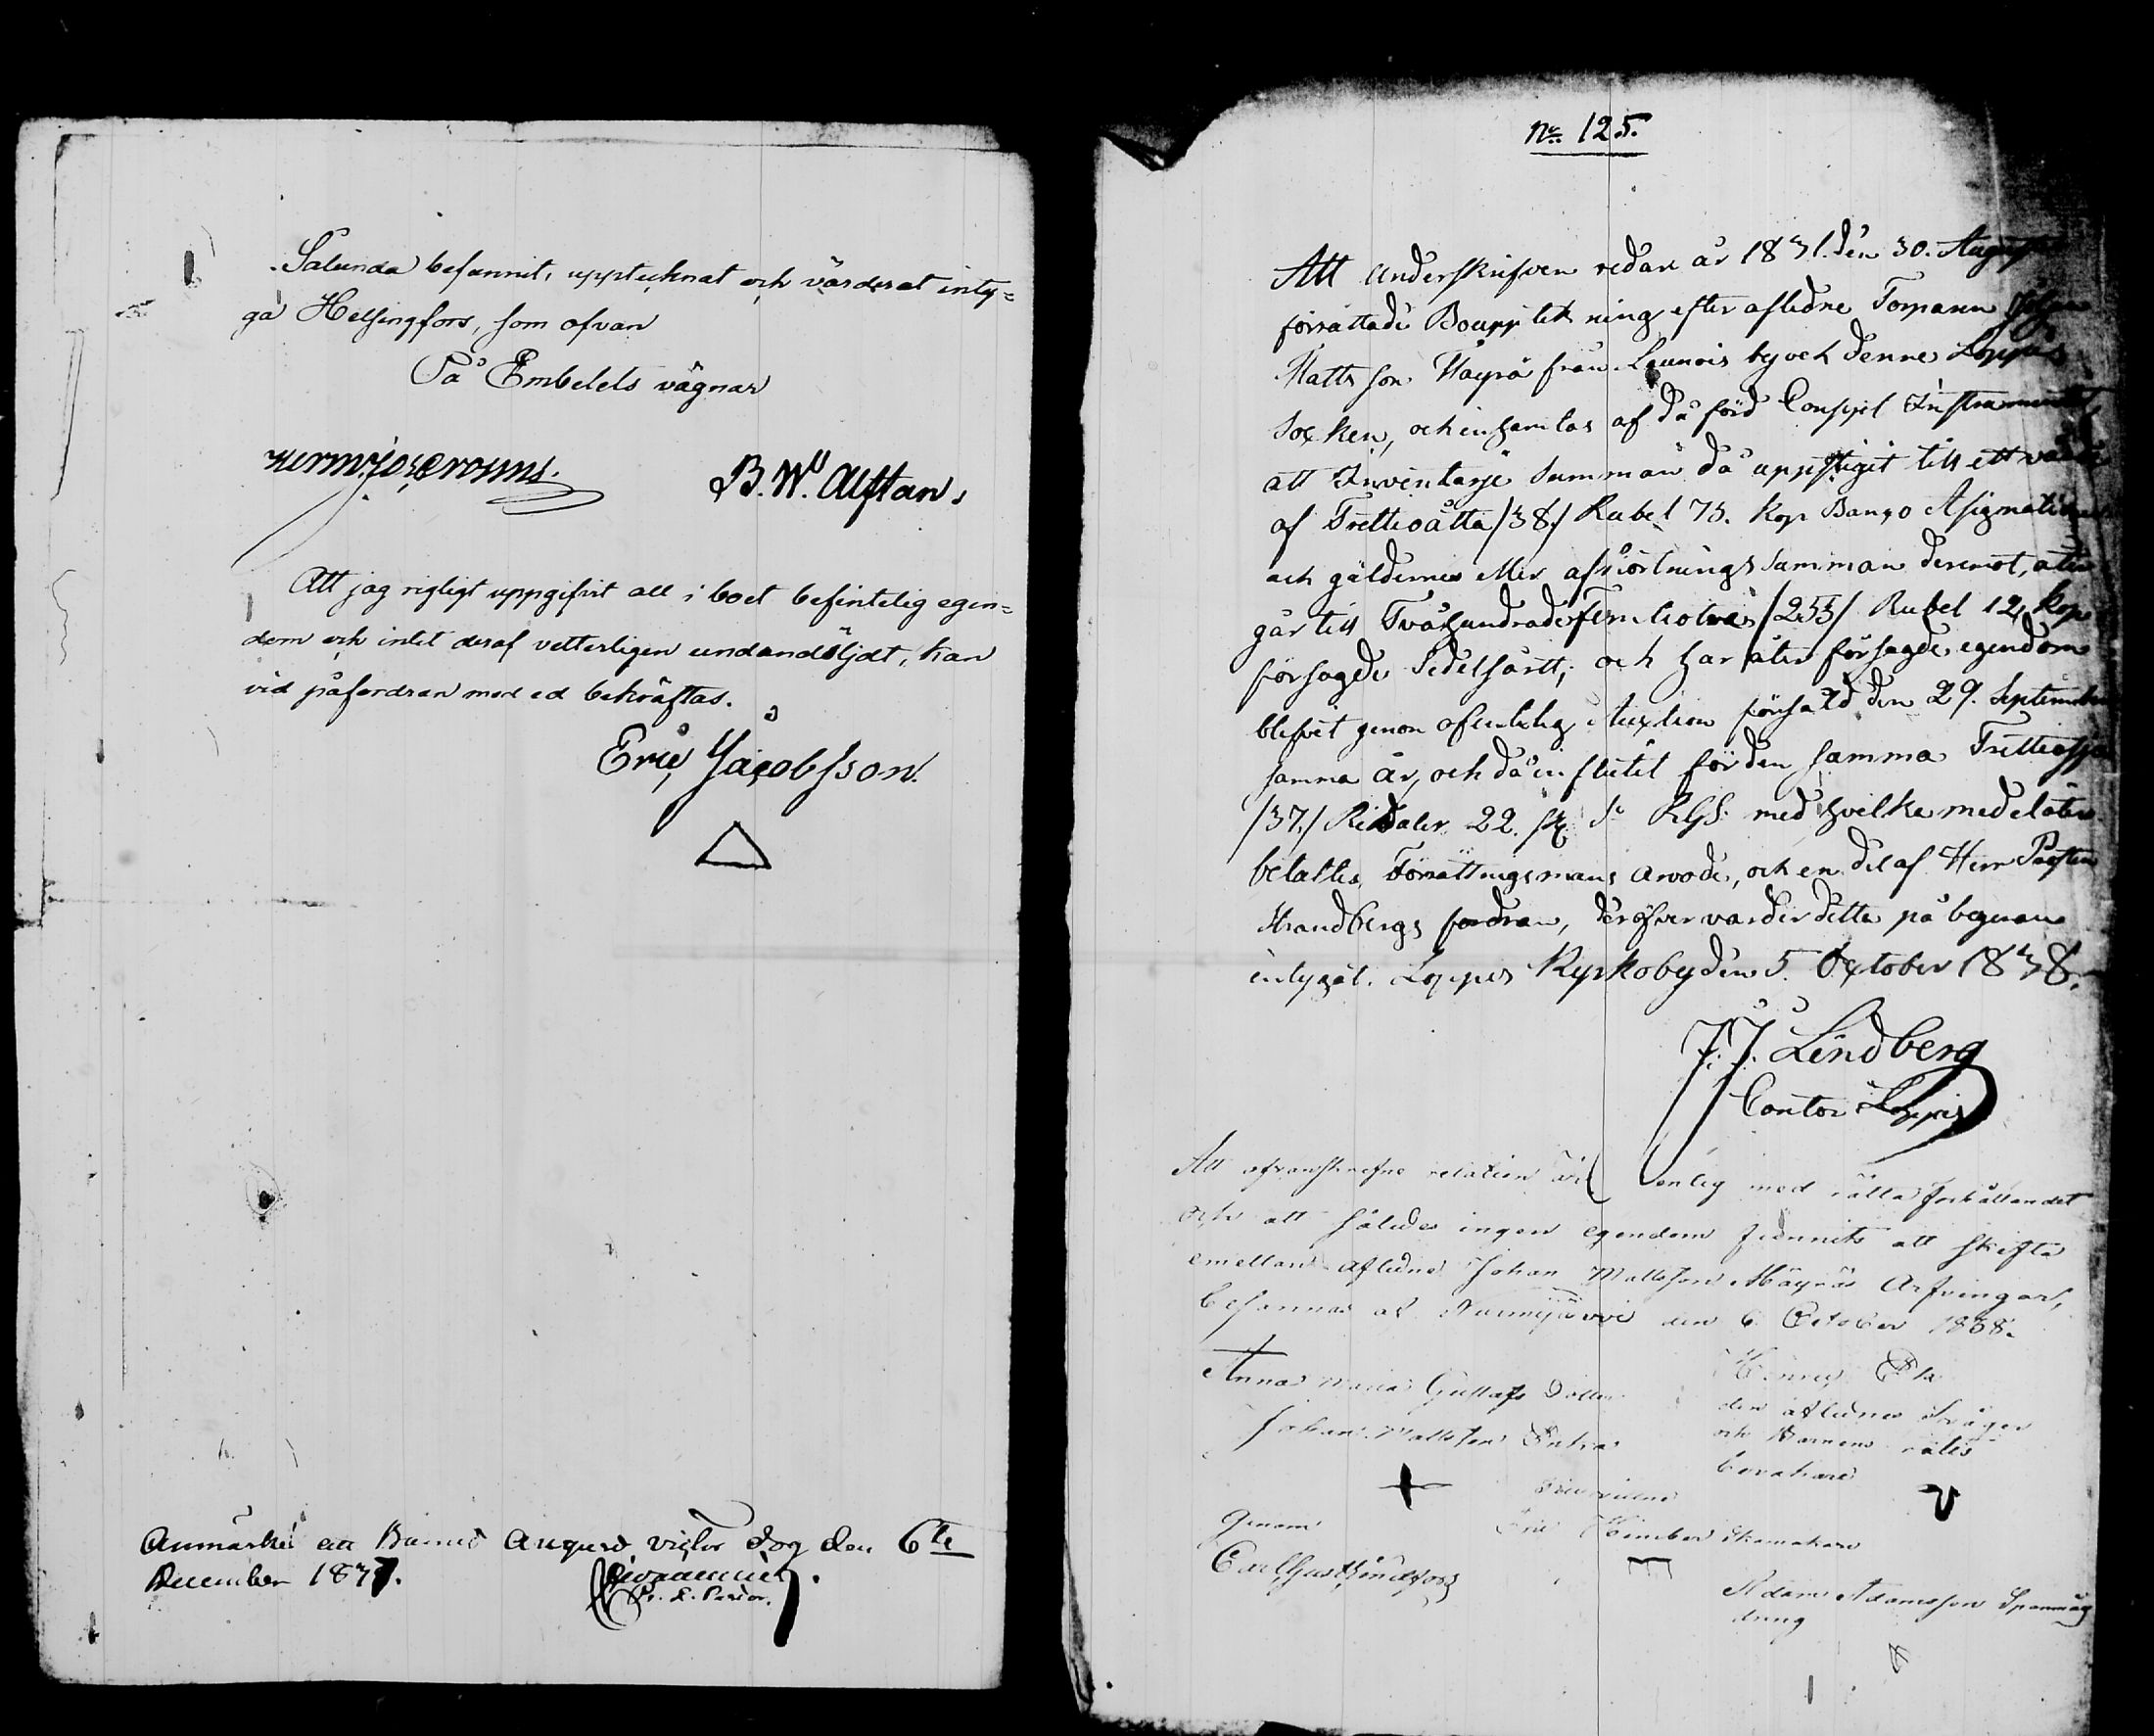 Salunda befannit, upptecknat och värderat inty=
ga Helsingfors, som ofvan
På Embetets vägnar
B. W. Alftan
Att jag rigtigt uppgifvit all i boet befintelig egen=
dom och intet deraf vetterligen undandöljdt, kan
vid påfordran med ed bekräftas.
Eric Jacobsson.
Anmärkes att Barnet August Victor dog den 6te
December 1837.
No 125.
Att underskrifven redan år 1831. den 30. August
förrättade Bouppteckning efter aflidne Torparen Johan
Mattsson Mäyrä från Launois by och denne Loppis
Socken, och inhämtas af då förd Instrument
att Inventarje Summan då uppstiget till ett värde
af Trettioåtta /38/ Rubel 75. kop Banco Assignationer
och gäldernes eller afkortnings Summan deremot, åter
går till Tvåhundrade femtiotre /253/ Rubel 12 kop
försagde Sedelsort; och har åter försagde egendom
blifvit genom ofentelig Auction försåld den 29. September
samma år, och då influtit för den samma Trettiosju
/37./ Riksdaler 22. sk RGS. med hvilke medel åter
betaltes Förrättningsmans arvode, och en del af Herr Pastor
Strandbergs fordran, deröfver varder detta på begäran
intygat. Loppis Kyrkoby den 5. October 1838.
J. J. Lindberg
Cantor i Loppis
Att ofvanskrefne relation är enlig med rätta förhållandet
och att således ingen egendom funnits att skifta
emellan aflidne Johan Mattsson Mäyräs Arfvingar,
den 6 October 1838.
Anna Maria Gustafs Dotter
Johan Mattsson
den aflidnes Svåger
och Barnens rätts
bevakare
Genom
Skomakare
Adam Adamsson
dräng